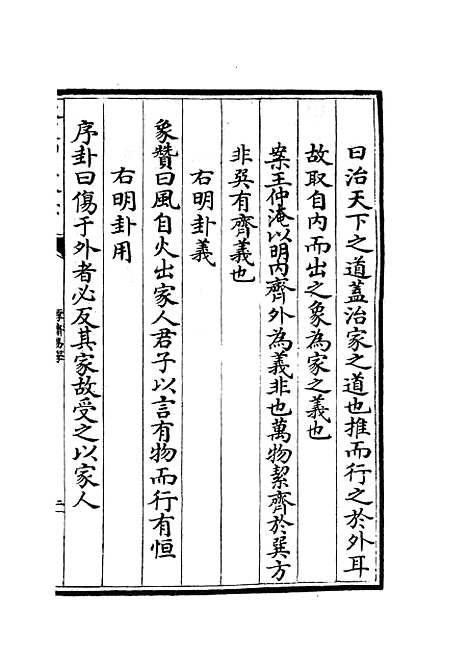 曰治天下之道蓋治家之道也推而行之於外耳
故取自内而出之象為家之義也
案王仲淹以明内齊外為義非也萬物絜齊於巽方
非巽有齊義也
右明卦義
象贊曰風自火出家人君子以言有物而行有恒
右明卦用
序卦曰傷于外者必反其家故受之以家人